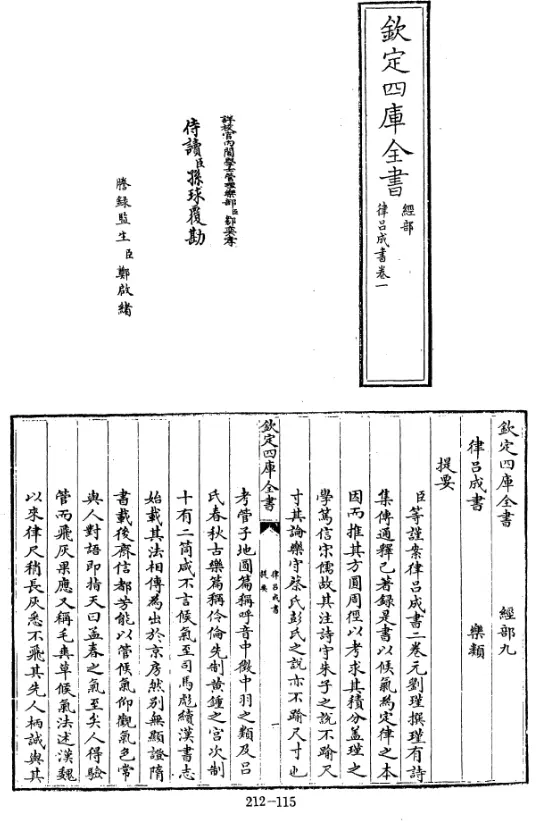 欽定四庫全書
經部
律呂成書卷一
詳校官內閣學士管理樂部臣鄒奕孝
侍讀臣孫球覆勘
謄錄監生臣鄭啟緒
欽定四庫全書
經部九
律呂成書
樂類
提要
臣等謹案律呂成書二卷元劉瑾撰瑾有詩
集傳通釋已著錄是書以候氣為定律之本
因而推其方圓周徑以考求其積分蓋瑾之
學篤信宋儒故其注詩守朱子之說不踰尺
寸其論樂守蔡氏彭氏之說亦不踰尺寸也
欽定四庫全書
律呂成書
提要
一
考管子地圓篇稱呼音中徵中羽之類及呂
氏春秋古樂篇稱伶倫先制黃鍾之宮次制
十有二筒咸不言候氣至司馬彪續漢書志
始載其法相傳為出於京房然別無顯證隋
書載後齊信都芳能以管候氣仰觀氣色常
與人對語即指天曰孟春之氣至矣人得驗
管而飛灰果應又稱毛爽草候氣法述漢魏
以來律尺稍長灰悉不飛其先人柄誠與其
212-115